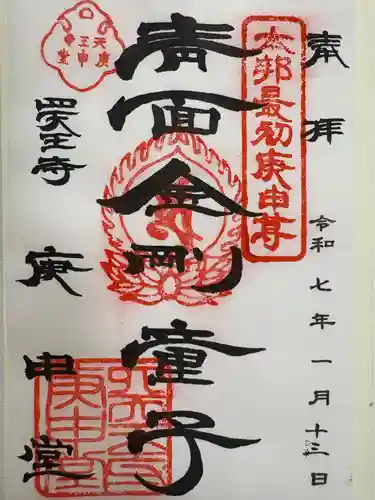 奉拝
令和七年一月十三日
本邦最初庚申尊
青面金剛童子
四天王寺
庚申堂